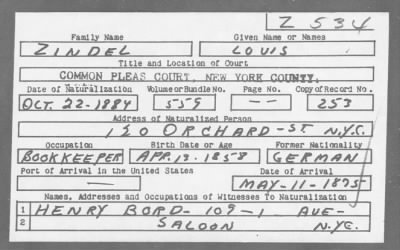 Z 534
Family Name Given Name or Names
ZINDEL LOUIS
Title and Location of Court
COMMON PLEAS COURT, NEW YORK COUNTY.
Date of Naturalization Volume or Bundle No. Page No. Copy of Record No.
OCT. 22-1884 559 -- 253
Address of Naturalized Person
120 ORCHARD-ST. N.Y.C.
Occupation Birth Date or Age Former Nationality
BOOKKEEPER APR. 13. 1858 GERMAN
Port of Arrival in the United States Date of Arrival
— MAY-11-1875
Names, Addresses and Occupations of Witnesses To Naturalization
1 HENRY BORD- 109-1 AVE-
2 SALOON N.Y.C.